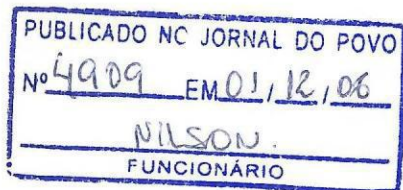 PUBLICADO NO JORNAL DO POVO
Nº 4909 EM 01, 12, 06
NILSON.
FUNCIONÁRIO